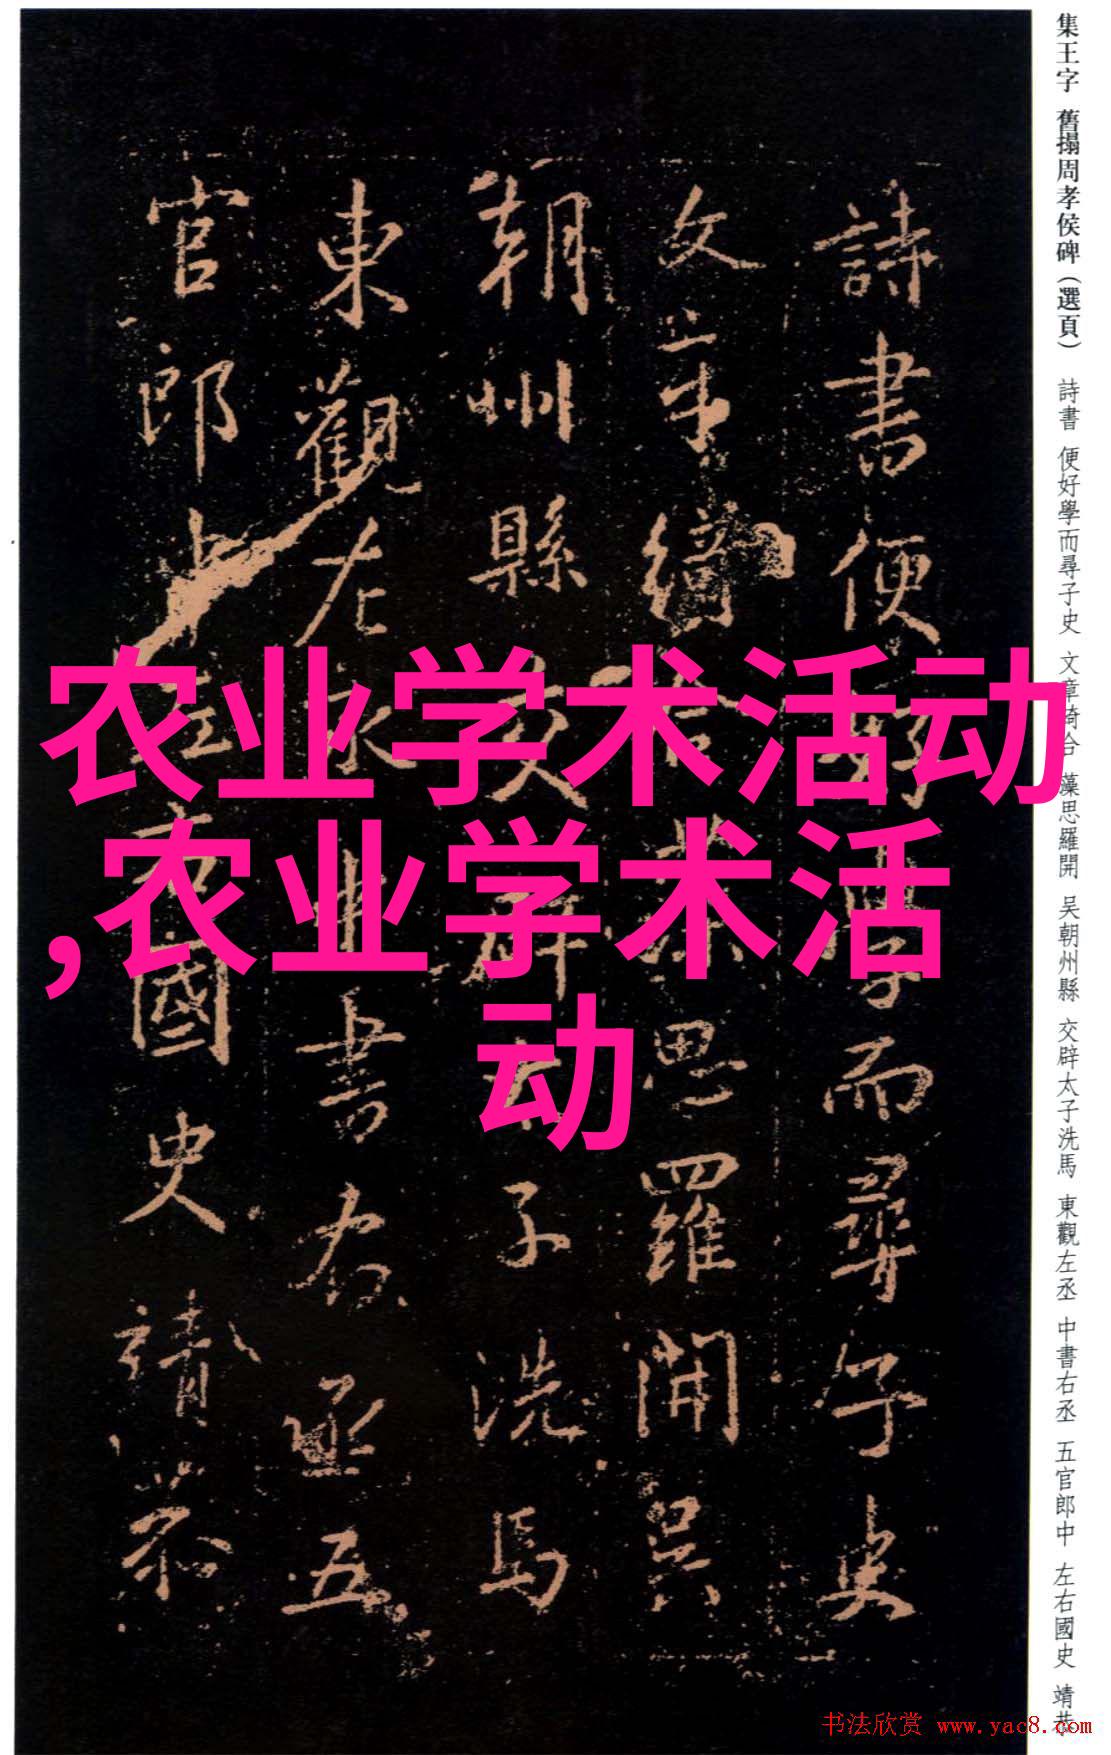 集王字 舊搨周孝侯碑（選頁） 詩書 便好學而尋子史 文章綺合 藻思羅開 吴朝州縣 交辟太子洗馬 東觀左丞 中書右丞 五官郎中 左右國史 靖恭
詩書便好學而尋子史
文章綺合藻思羅開吴
朝州縣交辟太子洗馬
東觀左丞中書右丞五
官郎中左右國史靖恭
农业学术活动
,农业学术活
动
书法欣赏 www.yac8.com